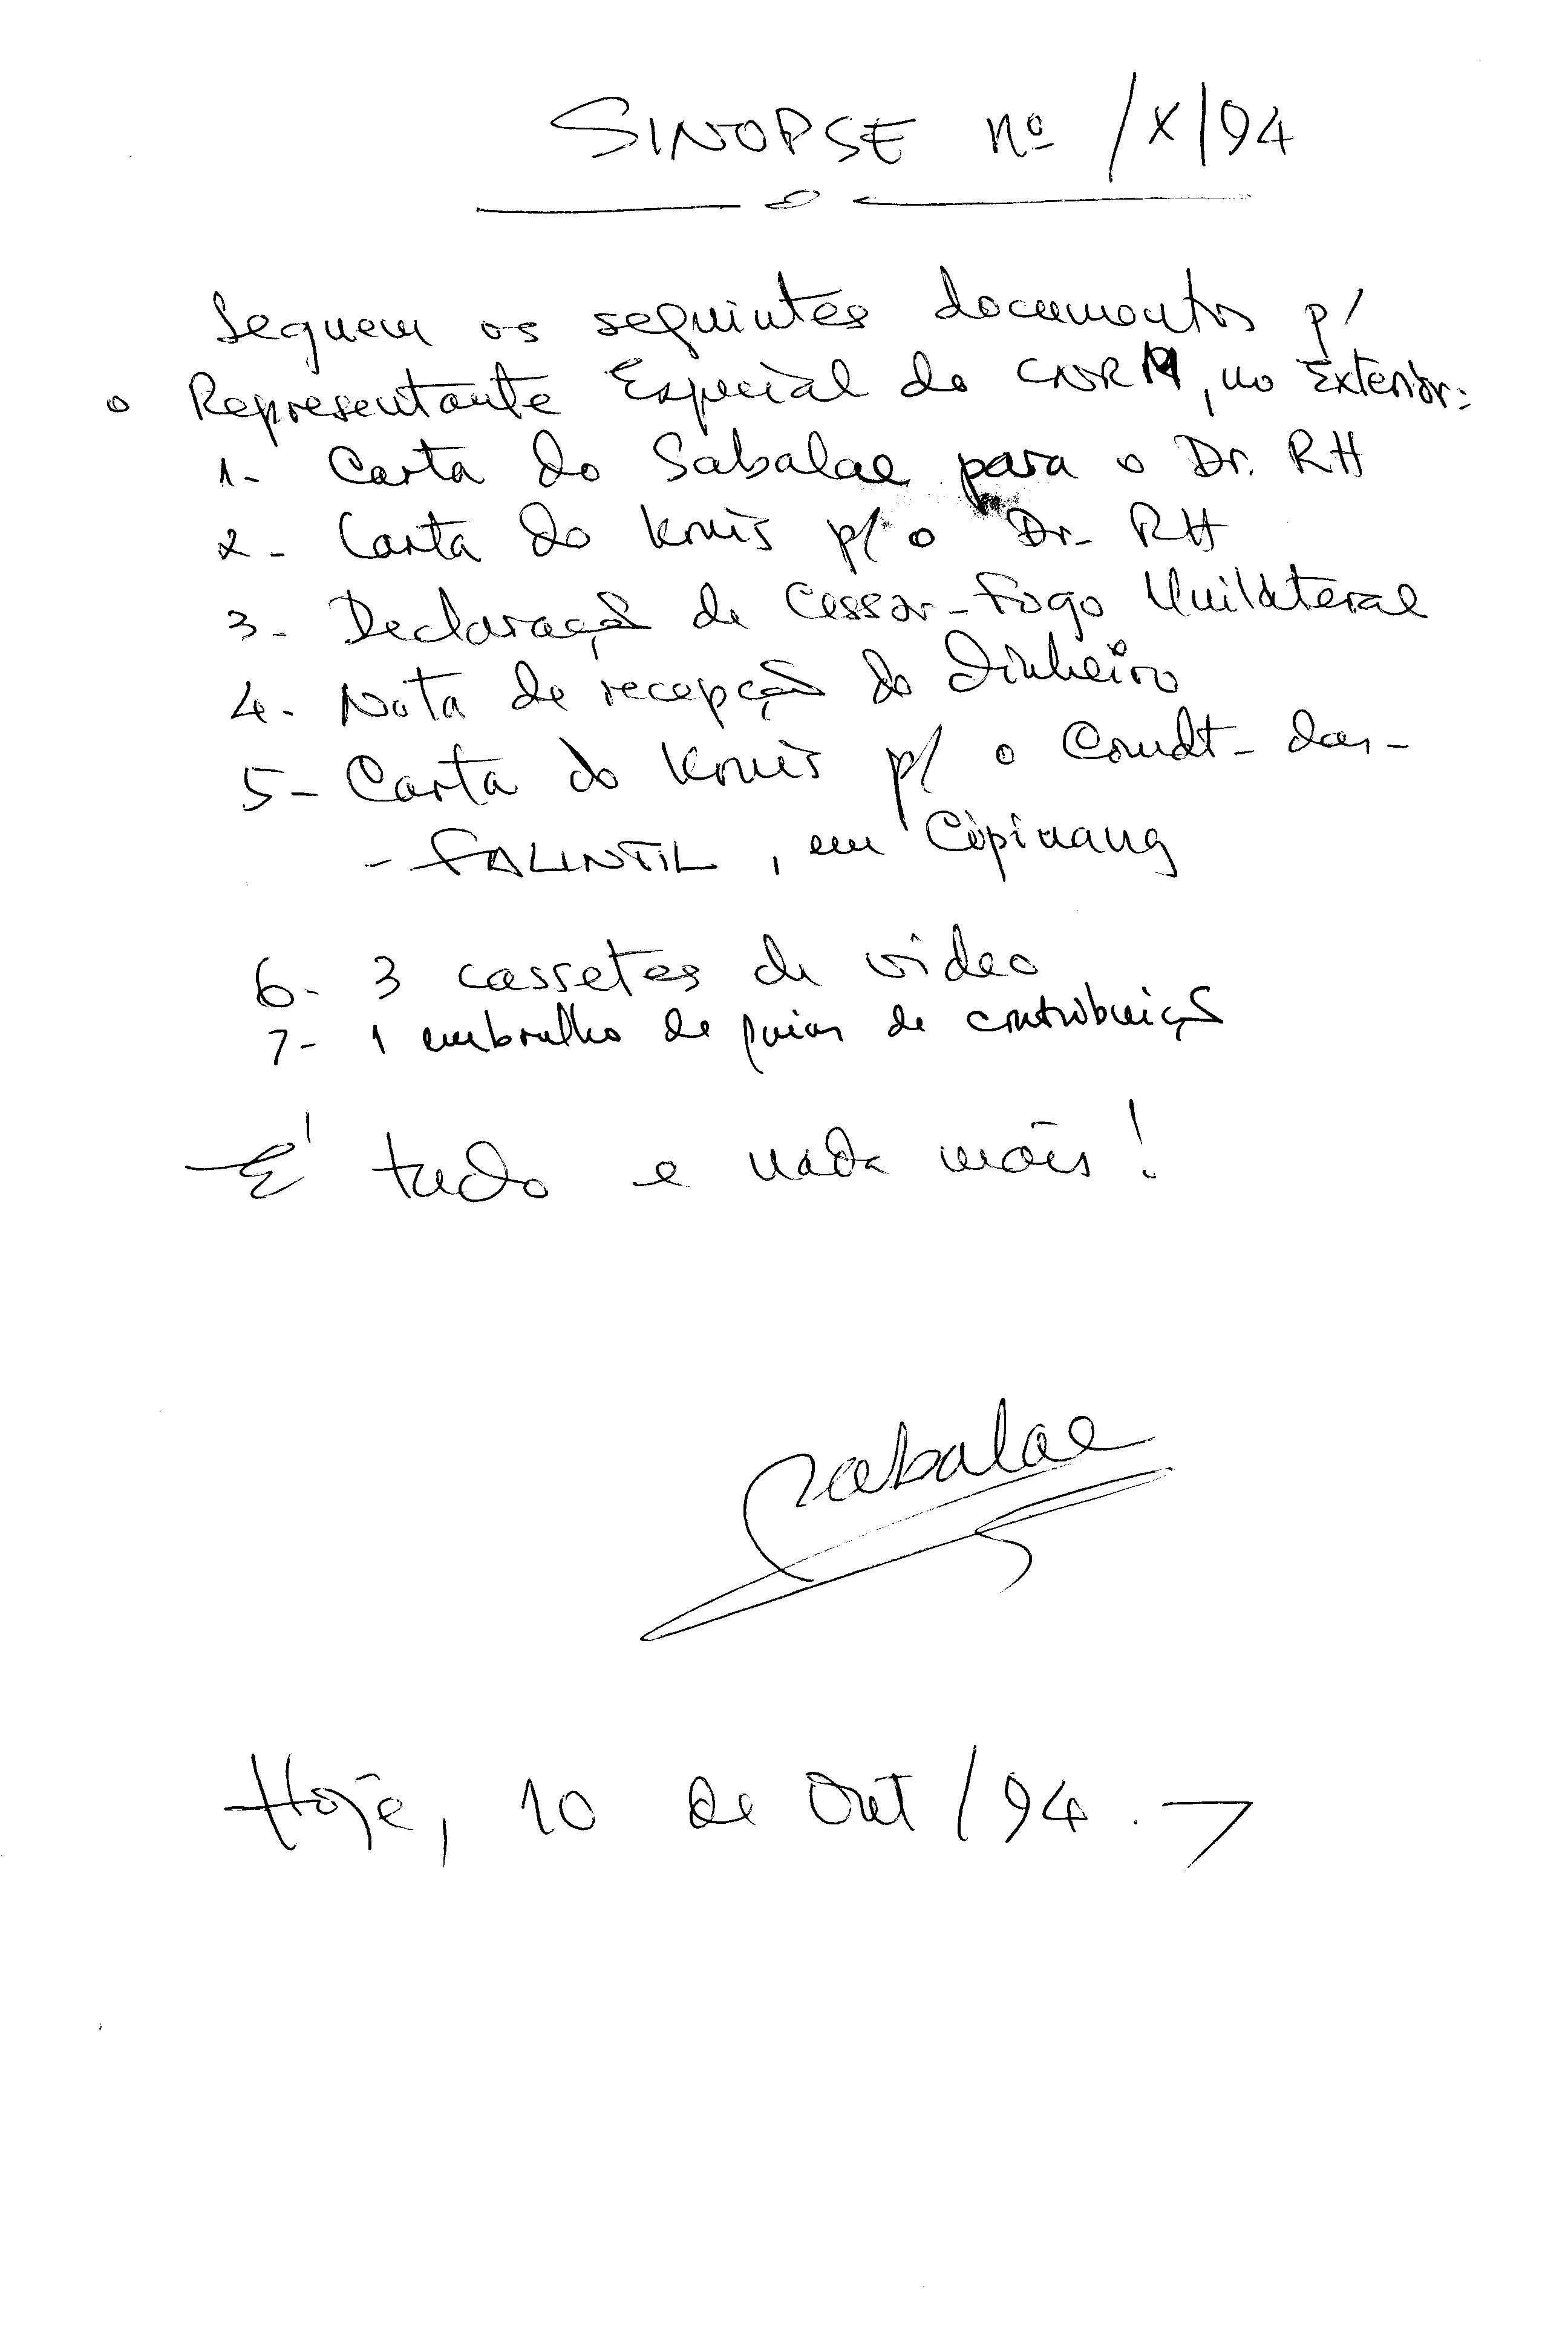 SINOPSE nº /X/94
Seguem os seguintes documentos p/
o Representante Especial do CNRM, no Exterior:
1- Carta do Sabalae para o Dr. RH
2- Carta do Konis p/ o Dr. RH
3- Declaração de Cessar-Fogo Unilateral
4- Nota de recepção do Dinheiro
5- Carta do Konis p/ o Comdt- das-
- FALINTIL, em Cipinang
6- 3 cassetes de video
7- 1 embrulho de guias de contribuição
É tudo e nada mais!
Sabalae
Hoje, 10 de Out/94.